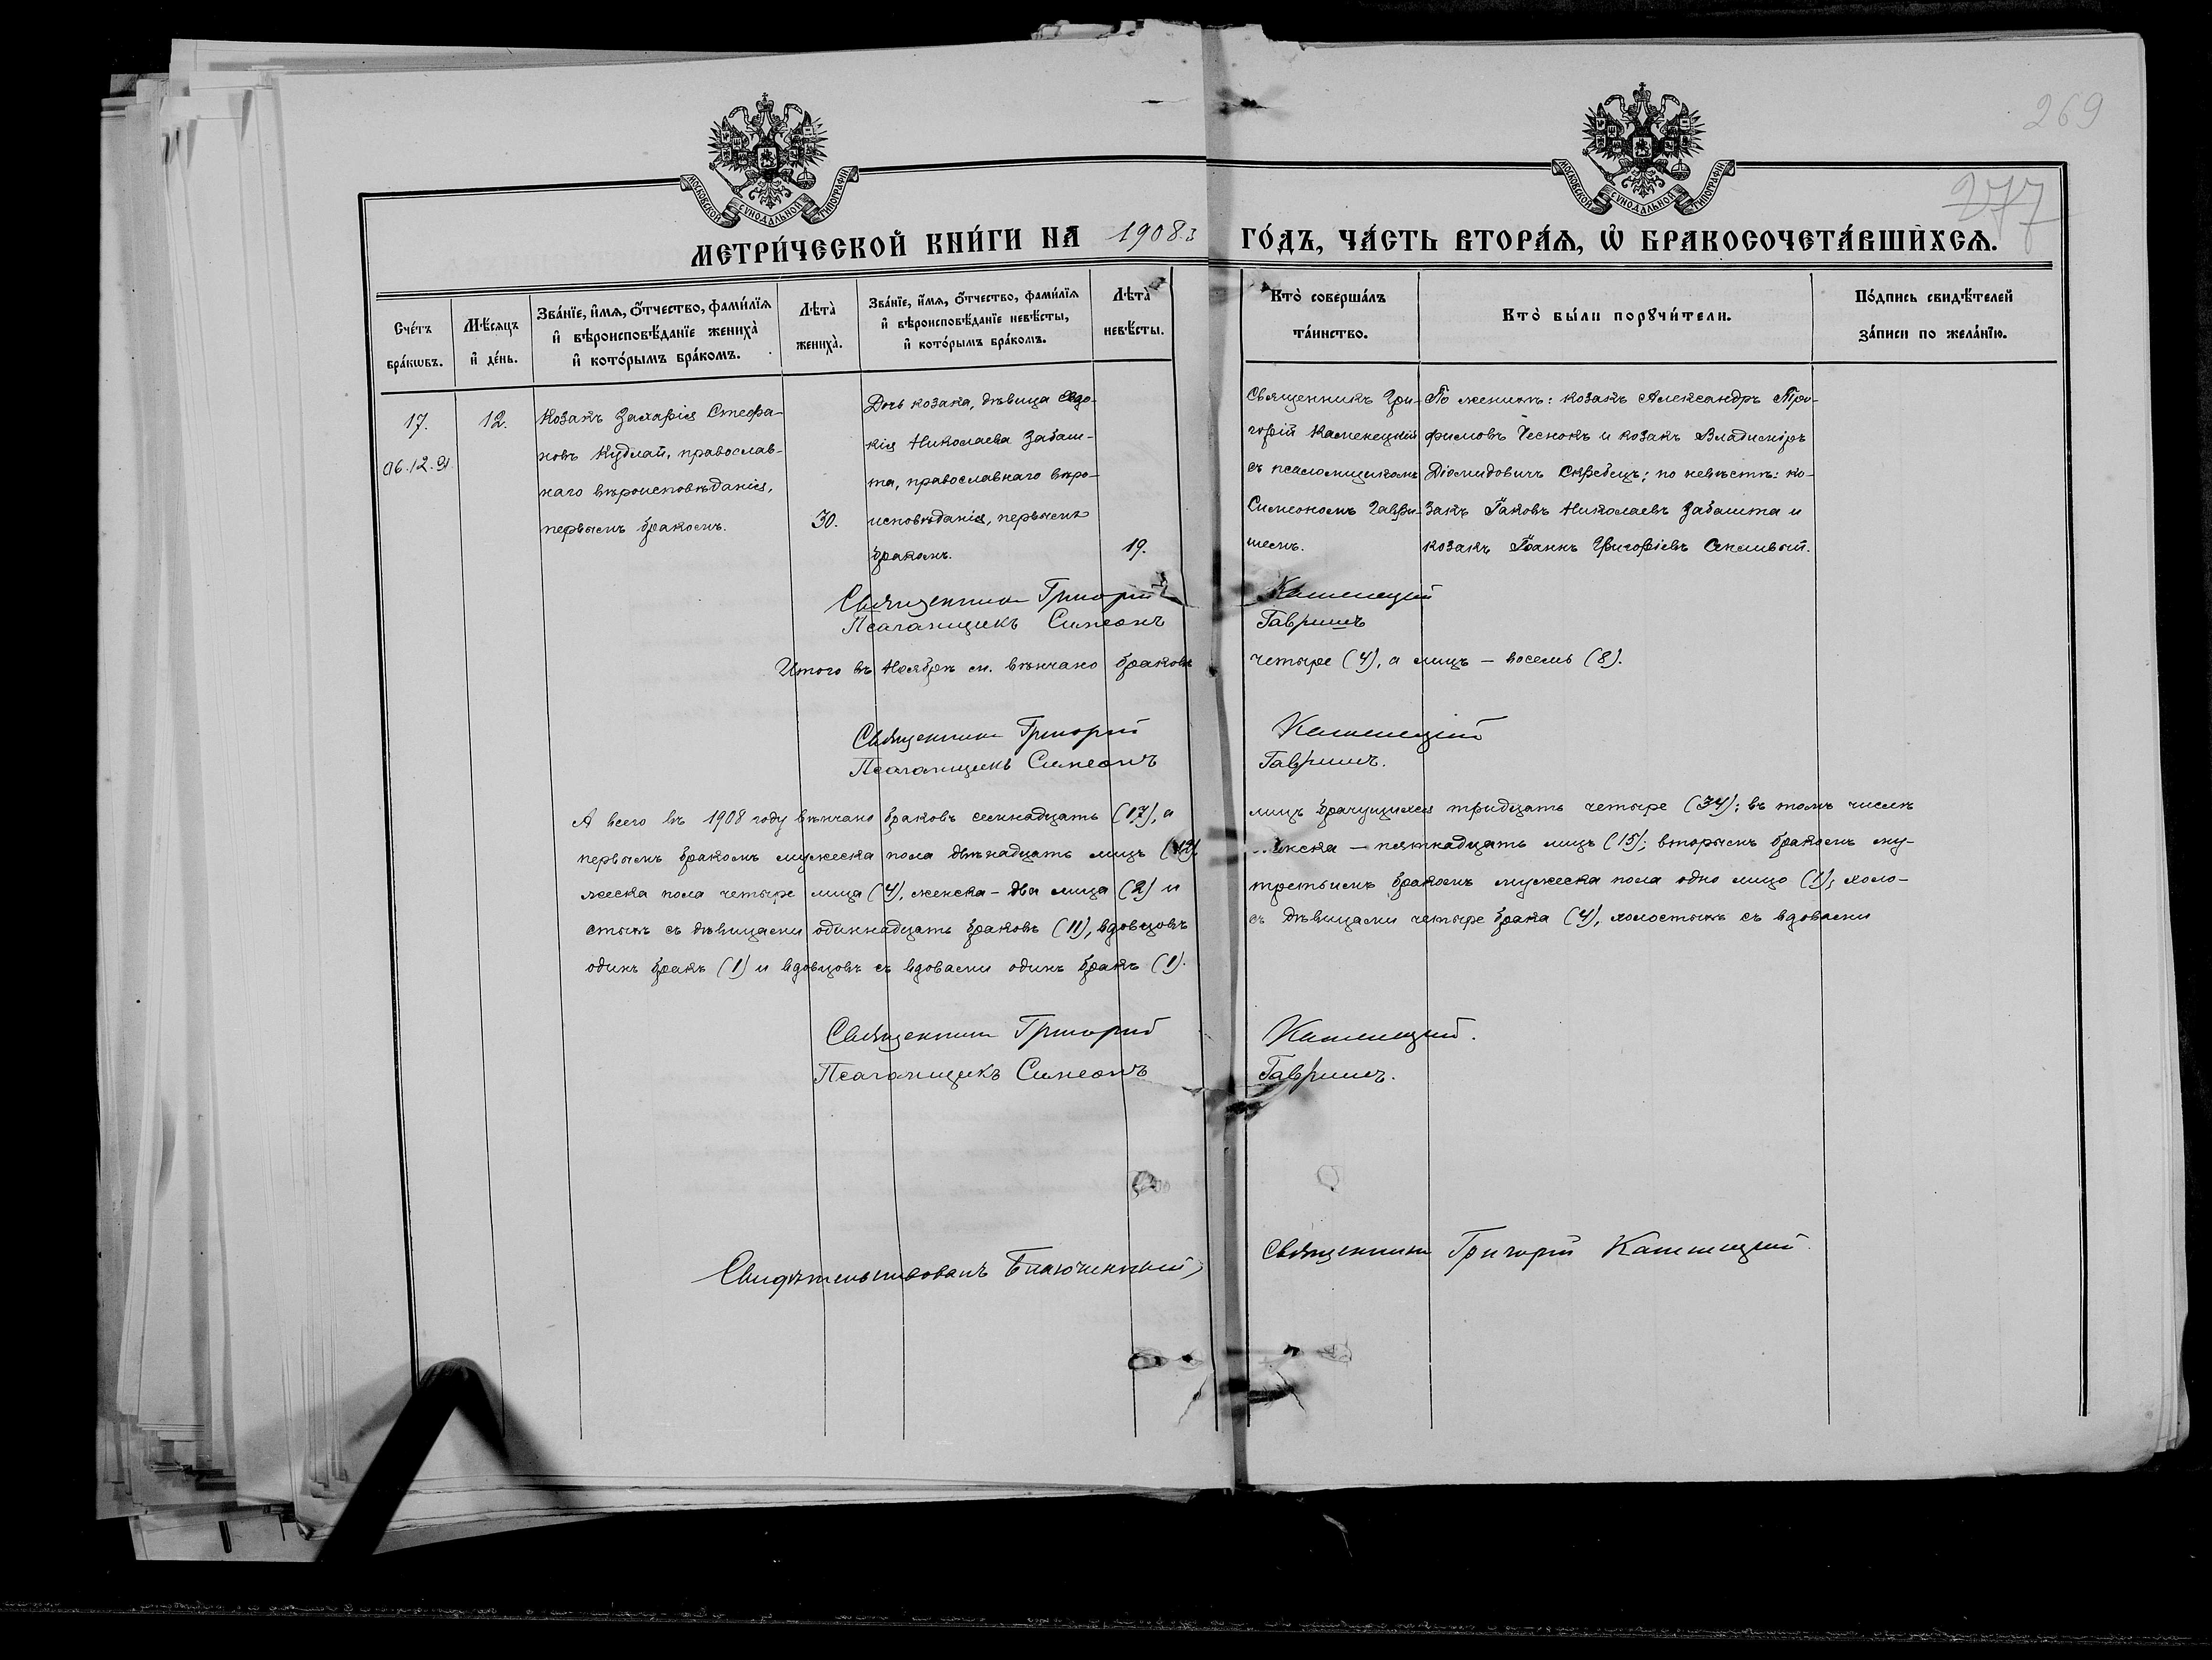 269
277
МОСКОВСКОЙ СѴНОДАЛЬНОЙ ТИПОГРАФІИ.
МОСКОВСКОЙ СѴНОДАЛЬНОЙ ТИПОГРАФІИ.
МЕТРИ́ЧЕСКОЙ КНИ́ГИ НА 1908 ГО́ДЪ, ЧА́СТЬ ВТОРА́Ѧ, Ѡ҆ БРАКОСОЧЕТА́ВШИХСѦ.
Сче́тъ
бра́кѡвъ.
Мѣ́сѧцъ
и҆ де́нь.
Зва́нїе, и҆́мѧ, ѻ҆́тчество, фами́лїѧ
и҆ вѣроисповѣ́данїе жениха̀
и҆ кото́рымъ бра́комъ.
Лѣта̀
жениха̀.
Зва́нїе, и҆́мѧ, ѻ҆́тчество, фами́лїѧ
и҆ вѣроисповѣ́данїе невѣ́сты,
и҆ кото́рымъ бра́комъ.
Лѣта̀
невѣ́сты.
Кто̀ соверша́лъ
та́инство.
Кто̀ бы́ли порꙋчи́тели.
По́дпись свидѣ́телей
за́писи по жела́нїю.
17.
12.
Козакъ Захарія Стефа-
новъ Кудлай, православ-
наго вѣроисповѣданія,
первымъ бракомъ.
30.
Дочь козака, дѣвица Евдо-
кія Николаева Забаш-
та, православнаго вѣро-
исповѣданія, первымъ
бракомъ.
19.
Священникъ Гри-
горій Каменецкій
съ псаломщикомъ
Симеономъ Гаври-
шемъ.
По женихѣ: козакъ Александръ Тро-
фимовъ Чеснокъ и козакъ Владиміръ
Діомидовичъ Скребецъ; по невѣстѣ: ко-
закъ Іаковъ Николаевъ Забашта и
козакъ Іоаннъ Григоріевъ
Священникъ Григорій Каменецкій
Псаломщикъ Симеонъ Гавришъ
Итого въ Ноябрѣ м. вѣнчано браковъ четыре (4), а лицъ – восемь (8).
Священникъ Григорій Каменецкій
Псаломщикъ Симеонъ Гавришъ.
А всего въ 1908 году вѣнчано браковъ семнадцать (17), а лицъ брачущихся тридцать четыре (34); въ томъ числѣ
первымъ бракомъ мужеска пола двѣнадцать лицъ (12), женска – пятнадцать лицъ (15); вторымъ бракомъ му-
жеска пола четыре лица (4), женска – два лица (2) и третьимъ бракомъ мужеска пола одно лицо (1); холо-
стыхъ съ дѣвицами одиннадцать браковъ (11), вдовцовъ съ дѣвицами четыре брака (4), холостыхъ съ вдовами
одинъ бракъ (1) и вдовцовъ съ вдовами одинъ бракъ (1).
Священникъ Григорій Каменецкій.
Псаломщикъ Симеонъ Гавришъ.
Свидѣтельствовалъ Благочинный, Священникъ Григорій Каменецкій